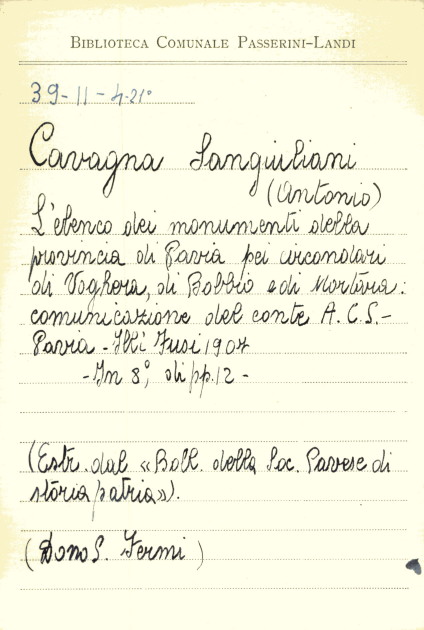 BIBLIOTECA COMUNALE PASSERINI-LANDI
39-11-4-21°
Cavagna Sangiuliani
(Antonio)
L'elenco dei monumenti della
provincia di Pavia pei circondari
di Voghera, di Bobbio e di Mortara:
comunicazione del conte A. C. S.-
Pavia - Flli Fusi 1907
- In 8°, di pp. 12 -
(Estr. dal «Boll. della Soc. Pavese di
storia patria»).
(Dono S. Fermi)